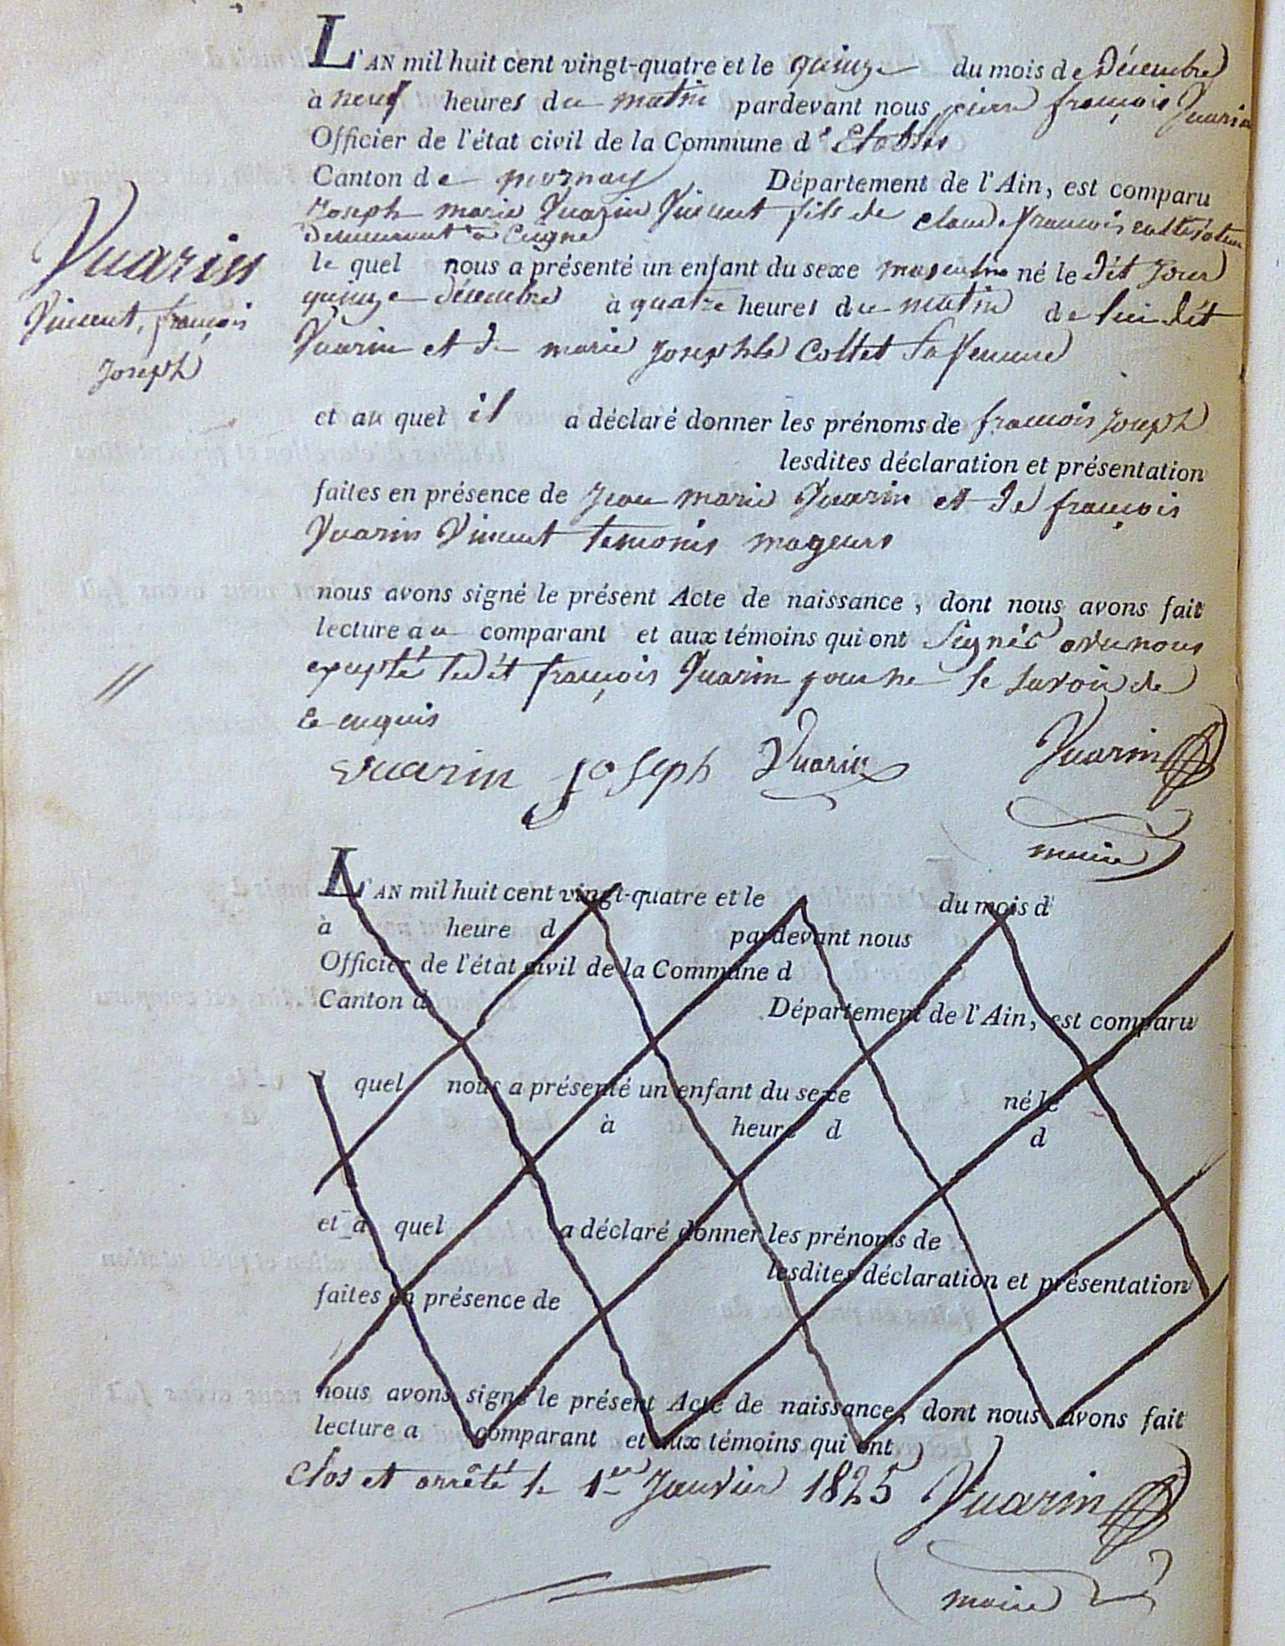 L'AN mil huit cent vingt-quatre et le quinze du mois de Décembre
à neuf heures du matin pardevant nous pierre françois Vuarin
Officier de l'état civil de la Commune d'Etables
Canton de Département de l'Ain, est comparu
Joseph marie Vuarin Vincent fils de claude françois cultivateur
Demeurant à Cuigne
le quel nous a présenté un enfant du sexe masculin né le dit jour
quinze décembre à quatre heures du matin de lui dit
Vuarin et de marie Josephte Collet sa femme
Vuarin
Vincent, françois
Joseph
et au quel il a déclaré donner les prénoms de françois Joseph
lesdites déclaration et présentation
faites en présence de Jean marie Vuarin et de françois
Vuarin Vincent temonis mageurs
nous avons signé le présent Acte de naissance, dont nous avons fait
lecture au comparant et aux témoins qui ont signés avec nous
excepté ledit françois Vuarin pour ne le savoir de
ce enquis
vuarin joseph Vuarin Vuarin
maire
L'AN mil huit cent vingt-quatre et le du mois d
à heure d pardevant nous
Officier de l'état civil de la Commune d
Canton d Département de l'Ain, est comparu
l quel nous a présenté un enfant du sexe né le
à heure d d
et a quel a déclaré donner les prénoms de
lesdites déclaration et présentation
faites en présence de
nous avons signé le présent Acte de naissance, dont nous avons fait
lecture a comparant et aux témoins qui ont
Clos et arrêté le 1er Janvier 1825 Vuarin
maire